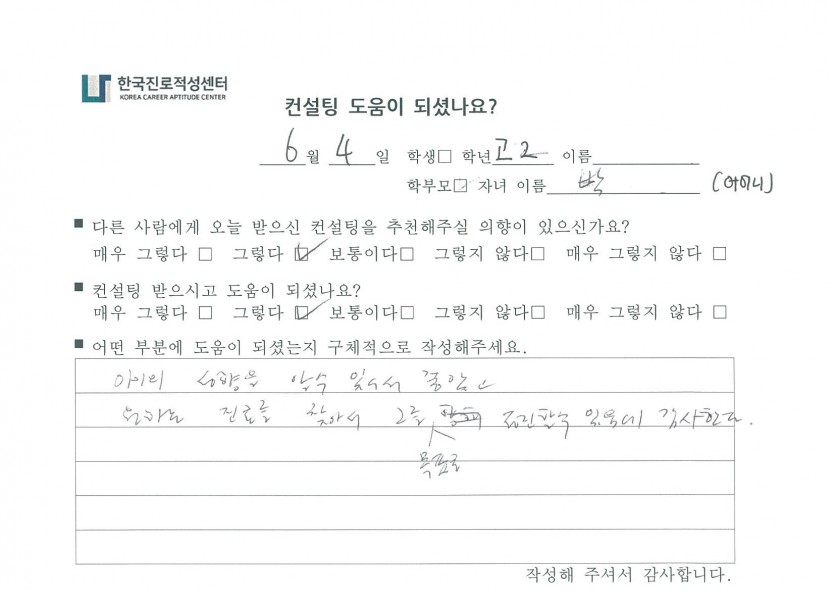 한국진로적성센터
KOREA CAREER APTITUDE CENTER
컨설팅 도움이 되셨나요?
6월 4일 학생□ 학년 고2 이름
학부모☑ 자녀 이름 박 (어머니)
■ 다른 사람에게 오늘 받으신 컨설팅을 추천해주실 의향이 있으신가요?
매우 그렇다 □ 그렇다 ☑ 보통이다□ 그렇지 않다□ 매우 그렇지 않다 □
■ 컨설팅 받으시고 도움이 되셨나요?
매우 그렇다 □ 그렇다 ☑ 보통이다□ 그렇지 않다□ 매우 그렇지 않다 □
■ 어떤 부분에 도움이 되셨는지 구체적으로 작성해주세요.
아이의 성향을 알수 있어서 좋았고
원하는 진로를 찾아서 그를 전진할수 있음에 감사한다.
목표로
작성해 주셔서 감사합니다.